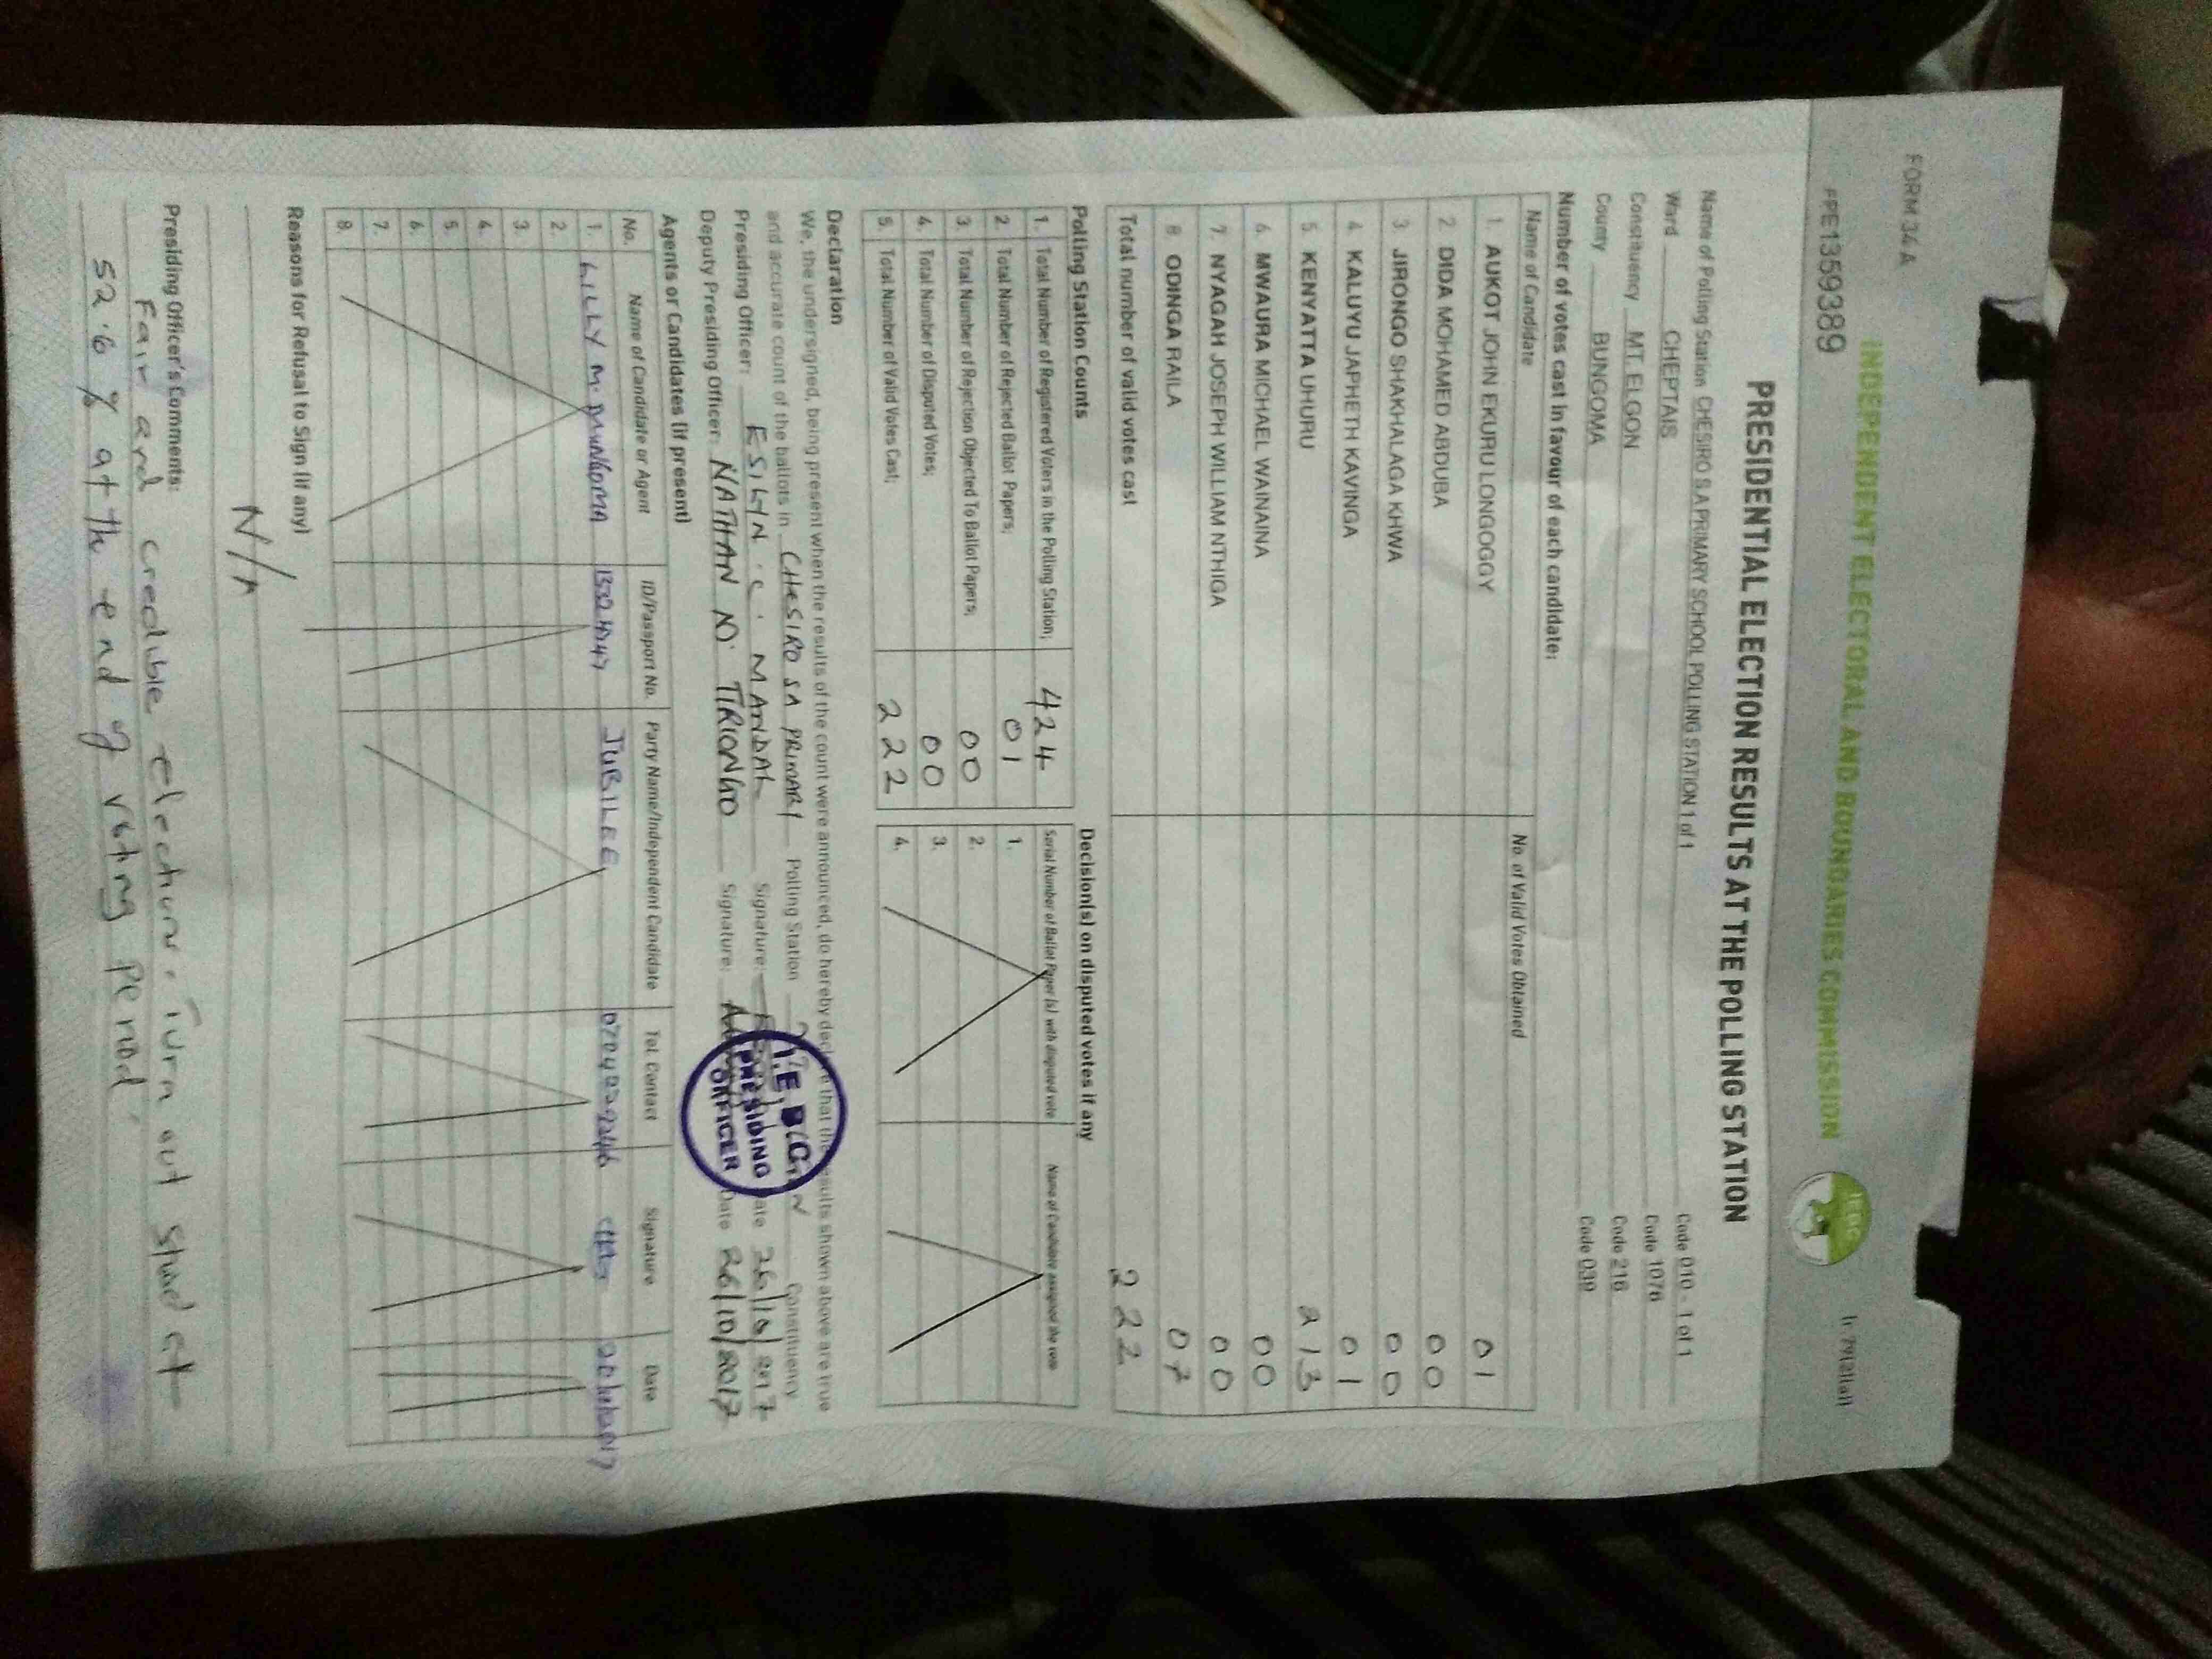 FORM 34 A
INDEPENDENT ELECTORAL AND BOUNDARIES COMMISSION
IEBC
PRESIDENTIAL ELECTION RESULTS AT THE POLLING STATION
Name of Polling Station CHESIRO S A PRIMARY SCHOOL POLLING STATION 1 of 1 Code 010 - 1 of 1
Ward CHEPTAIS Code 1076
Constituency MT. ELGON Code 216
County BUNGOMA Code 039
Number of votes cast in favour of each candidate:
Name of Candidate No. of Valid Votes Obtained
1. AUKOT JOHN EKURU LONGOGGY 01
2. DIDA MOHAMED ABDUBA 00
3. JIRONGO SHAKHALAGA KHWA 00
4. KALUYU JAPHETH KAVINGA 01
5. KENYATTA UHURU 213
6. MWAURA MICHAEL WAINAINA 00
7. NYAGAH JOSEPH WILLIAM NTHIGA 00
8. ODINGA RAILA 07
Total number of valid votes cast 222
Polling Station Counts Decision(s) on disputed votes if any
Serial Number of Ballot Paper (s) with disputed vote Name of Candidate assigned the vote
1. Total Number of Registered Voters in the Polling Station; 424
2. Total Number of Rejected Ballot Papers; 01 1.
3. Total Number of Rejection Objected To Ballot Papers; 00 2.
4. Total Number of Disputed Votes; 00 3.
5. Total Number of Valid Votes Cast; 222 4.
Declaration
We, the undersigned, being present when the results of the count were announced, do hereby declare that the results shown above are true
and accurate count of the ballots in CHESIRO SA PRIMARY Polling Station Constituency
Presiding Officer: Signature: Date 26/10/2017
Deputy Presiding Officer: NATHAN N. Signature: Date 26/10/2017
I.E.B.C.
PRESIDING
OFFICER
Agents or Candidates (if present)
No. Name of Candidate or Agent ID/Passport No. Party Name/Independent Candidate Tel. Contact Signature Date
1. LILLY M. JUBILEE
2.
3.
4.
5.
6.
7.
8.
Reasons for Refusal to Sign (if any)
N/A
Presiding Officer's Comments:
Fair and credible elections. Turn out stood at
52.6 % at the end of voting period.